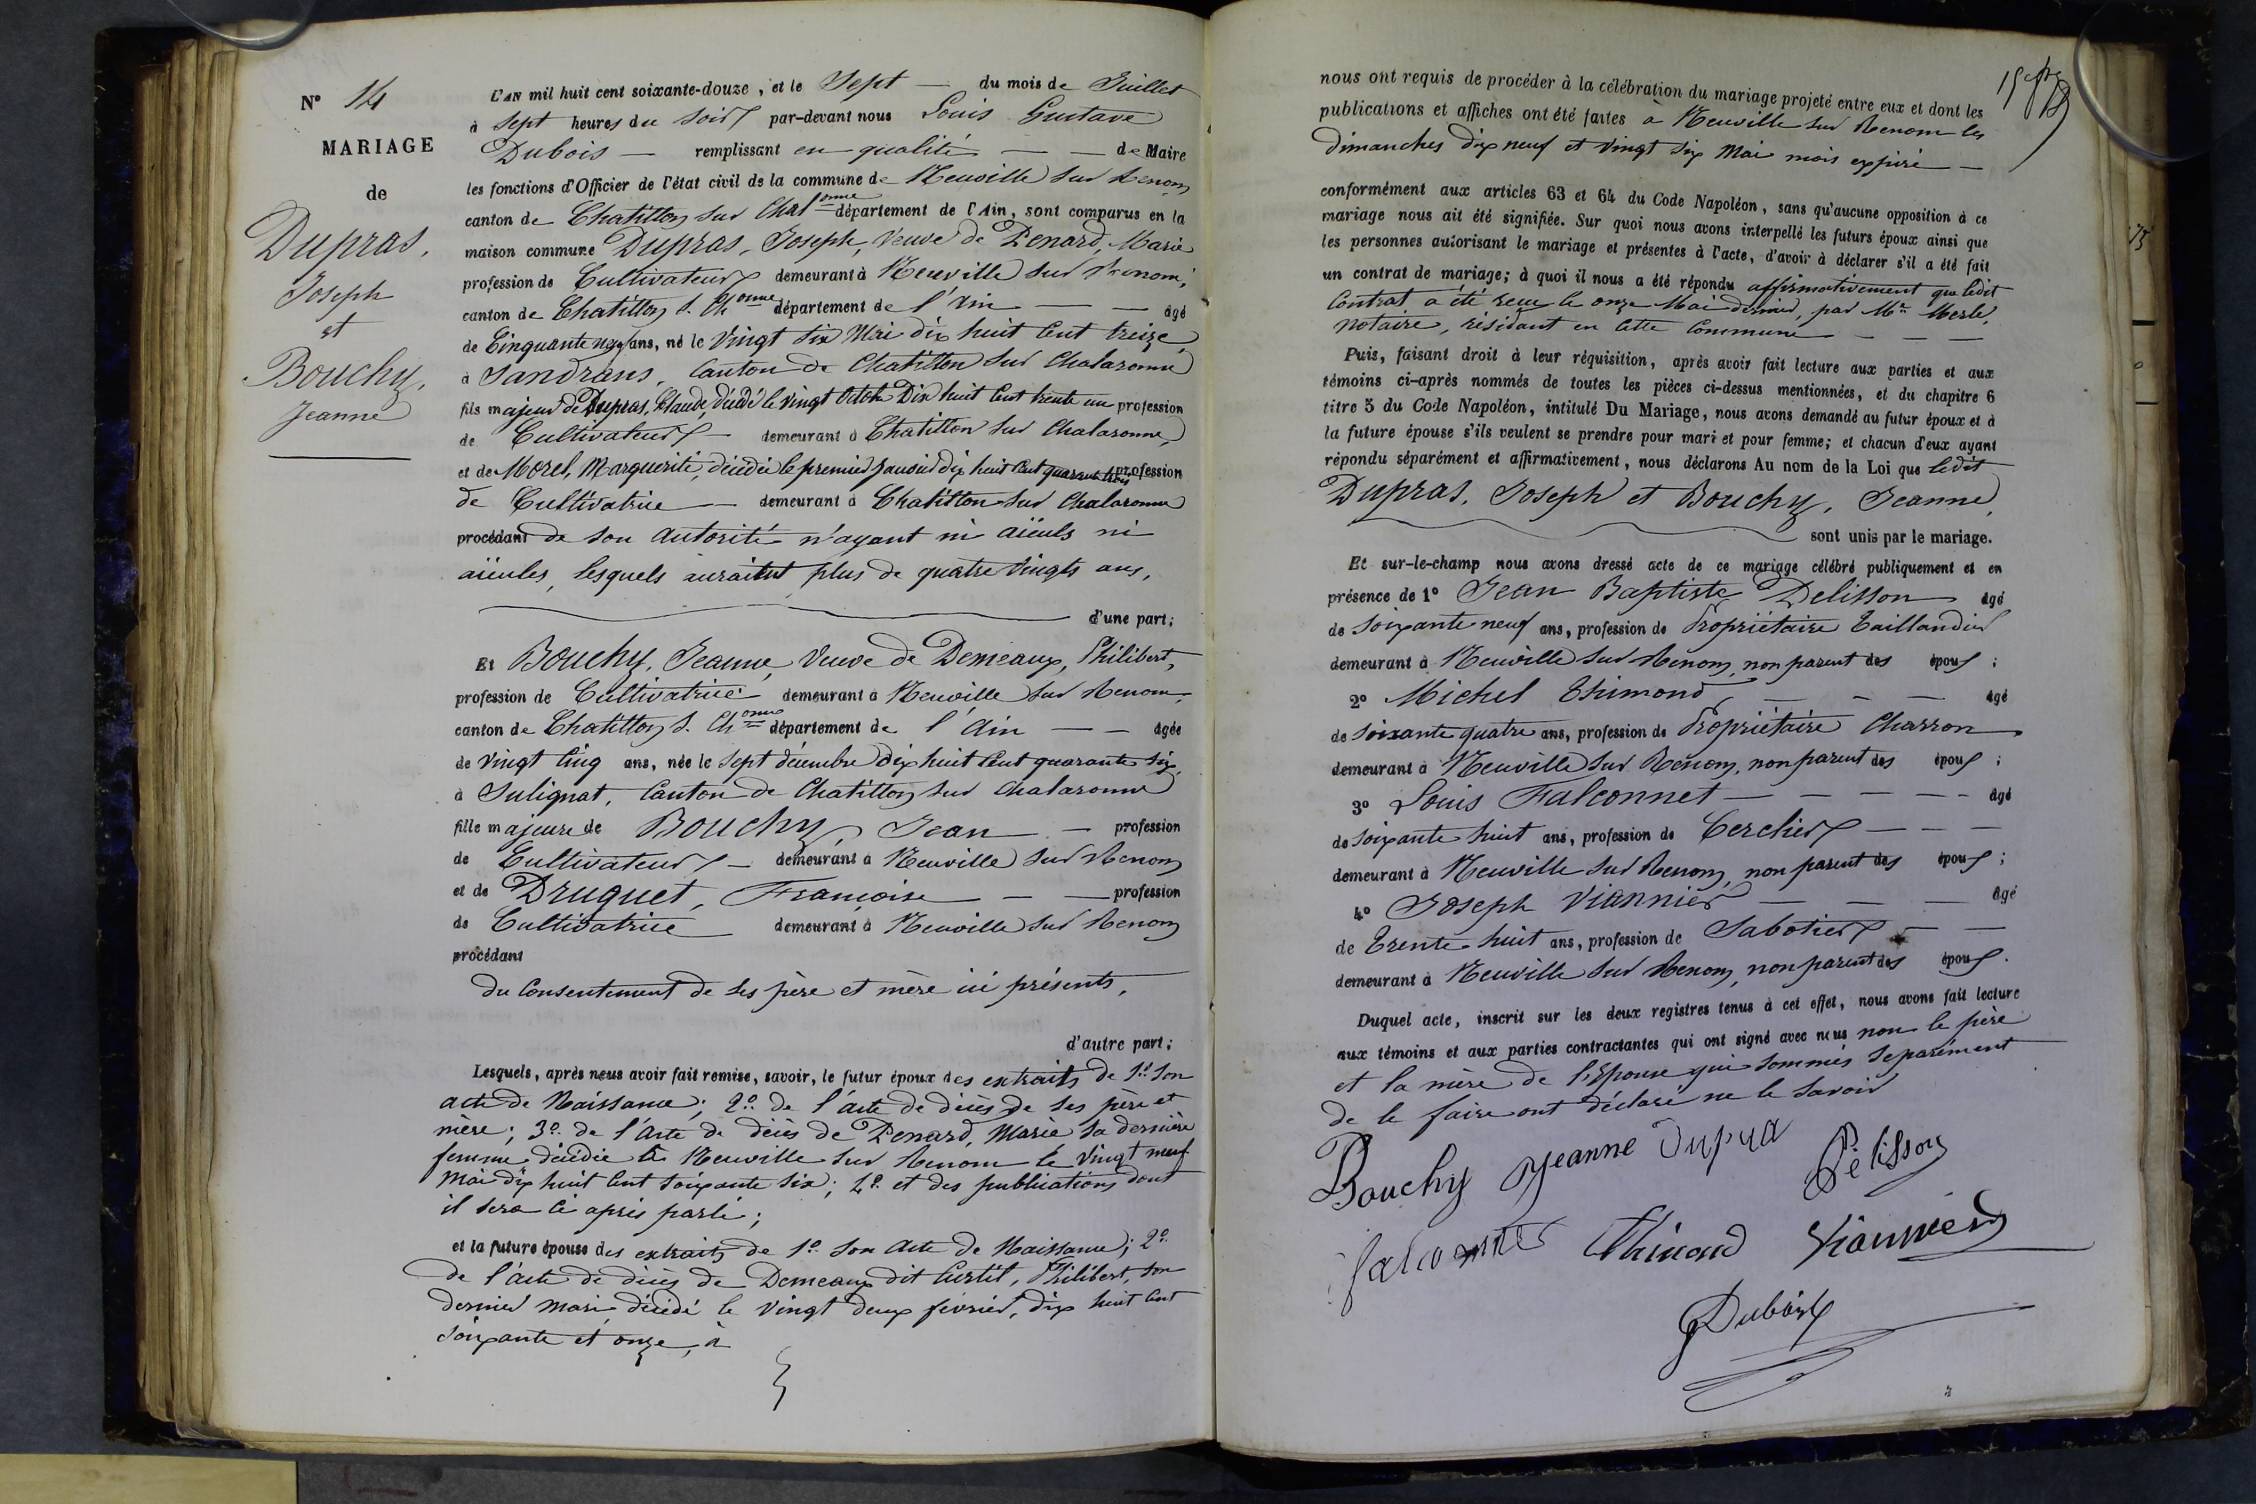 Nº 14
MARIAGE
de
Dupras,
Joseph
et
Bouchy,
Jeanne
L'AN mil huit cent soixante-douze, et le Sept — du mois de Juillet
à Sept heures du Soir par-devant nous Louis Gustave
Dubois — remplissant en qualité — — de Maire
les fonctions d'Officier de l'état civil de la commune de Neuville sur Renom
canton de Chatillon sur Chalonne département de l'Ain, sont comparus en la
maison commune Dupras, Joseph, Veuve de Penard, Marie
profession de Cultivateur demeurant à Neuville sur Renom,
canton de Chatillon s. Chonne département de l'Ain — — âgé
de Cinquante neuf ans, né le Vingt six Mai dix huit Cent treize,
à Sandrans, Canton de Chatillon sur Chalaronne
fils majeur de Dupras, Claude, décédé le vingt Octobre Dix huit Cent trente un profession
de Cultivateur — demeurant à Chatillon sur Chalaronne,
et de Morel, Marguerite, décédée le premier Janvier dix huit Cent quarante trois profession
de Cultivatrice — demeurant à Chatillon sur Chalaronne
procédant de son autorité n'ayant ni aïeuls ni
aïeules, lesquels auraient plus de quatre Vingts ans,
d'une part;
Et Bouchy, Jeanne, Veuve de Demeaux, Philibert,
profession de Cultivatrice demeurant à Neuville sur Renom,
canton de Chatillon s. Chonne département de l'Ain — — âgée
de Vingt Cinq ans, née le Sept décembre dix huit Cent quarante six,
à Sulignat, Canton de Chatillon sur Chalaronne
fille majeure de Bouchy, Jean — profession
de Cultivateur — demeurant à Neuville sur Renom
et de Druguet, Françoise — — profession
de Cultivatrice demeurant à Neuville sur Renom
procédant
du Consentement de ses père et mère ici présents,
d'autre part;
Lesquels, après nous avoir fait remise, savoir, le futur époux des extraits de 1º Son
acte de Naissance; 2º de l'acte de décès de ses père et
mère; 3º de l'Acte de décès de Penard, Marie sa dernière
femme décédée à Neuville sur Renom le Vingt neuf
Mai dix huit Cent soixante six; 4º et des publications dont
il sera ci après parlé;
et la future épouse des extraits de 1º Son Acte de Naissance; 2º
de l'acte de décès de Demeaux dit Curtil, Philibert, son
dernier mari, décédé le Vingt deux février, dix huit Cent
soixante et onze, à
nous ont requis de procéder à la célébration du mariage projeté entre eux et dont les
publications et affiches ont été faites à Neuville sur Renom les
dimanches dix neuf et vingt six Mai mois expiré —
conformément aux articles 63 et 64 du Code Napoléon, sans qu'aucune opposition à ce
mariage nous ait été signifiée. Sur quoi nous avons interpellé les futurs époux ainsi que
les personnes autorisant le mariage et présentes à l'acte, d'avoir à déclarer s'il a été fait
un contrat de mariage; à quoi il nous a été répondu affirmativement que ledit
Contrat a été reçu le onze Mai dernier, par Mre Merle,
notaire, résidant en cette Commune — — —
Puis, faisant droit à leur réquisition, après avoir fait lecture aux parties et aux
témoins ci-après nommés de toutes les pièces ci-dessus mentionnées, et du chapitre 6
titre 5 du Code Napoléon, intitulé Du Mariage, nous avons demandé au futur époux et à
la future épouse s'ils veulent se prendre pour mari et pour femme; et chacun d'eux ayant
répondu séparément et affirmativement, nous déclarons Au nom de la Loi que ledit
Dupras, Joseph et Bouchy, Jeanne,
sont unis par le mariage.
Et sur-le-champ nous avons dressé acte de ce mariage célébré publiquement et en
présence de 1º Jean Baptiste Pelisson âgé
de Soixante neuf ans, profession de Propriétaire Taillandier
demeurant à Neuville sur Renom, non parent des époux;
2º Michel Thimond — — — âgé
de soixante quatre ans, profession de Propriétaire Charron
demeurant à Neuville sur Renom, non parent des époux;
3º Louis Falconnet — — — — âgé
de soixante huit ans, profession de Cerclier — — —
demeurant à Neuville sur Renom, non parent des époux;
4º Joseph Viannier — — — âgé
de Trente huit ans, profession de Sabotier — —
demeurant à Neuville sur Renom, non parent des époux.
Duquel acte, inscrit sur les deux registres tenus à cet effet, nous avons fait lecture
aux témoins et aux parties contractantes qui ont signé avec nous non le père
et la mère de l'Epouse qui sommés Séparément
de le faire ont déclaré ne le Savoir
Bouchy Jeanne Dupra Pelisson
falconnet Thimond Viannier
Dubois